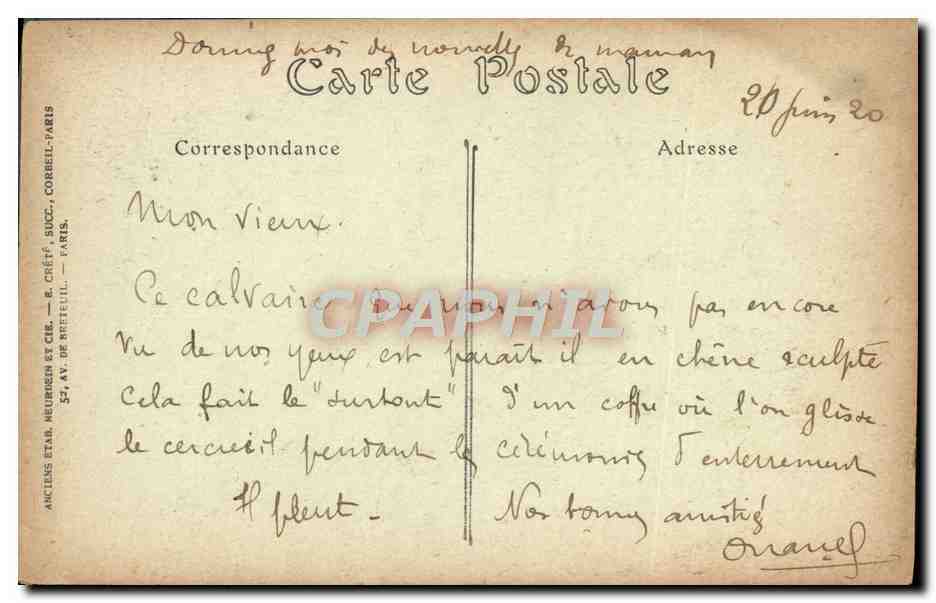 Donnez moi des nouvelles de maman
Carte Postale
20 juin 20
Correspondance
Adresse
ANCIENS ETAB. NEURDEIN ET CIE. — E. CRÉTÉ, SUCC., CORBEIL-PARIS
52, AV. DE BRETEUIL. — PARIS.
Mon vieux.
Ce calvaire que nous n'avons pas encore
vu de nos yeux est parait il en chêne sculpté
Cela fait le "surtout" d'un coffre où l'on glisse
le cercueil pendant les cérémonies d'enterrement
Il pleut - Nos bonnes amitiés
CPAPHIL